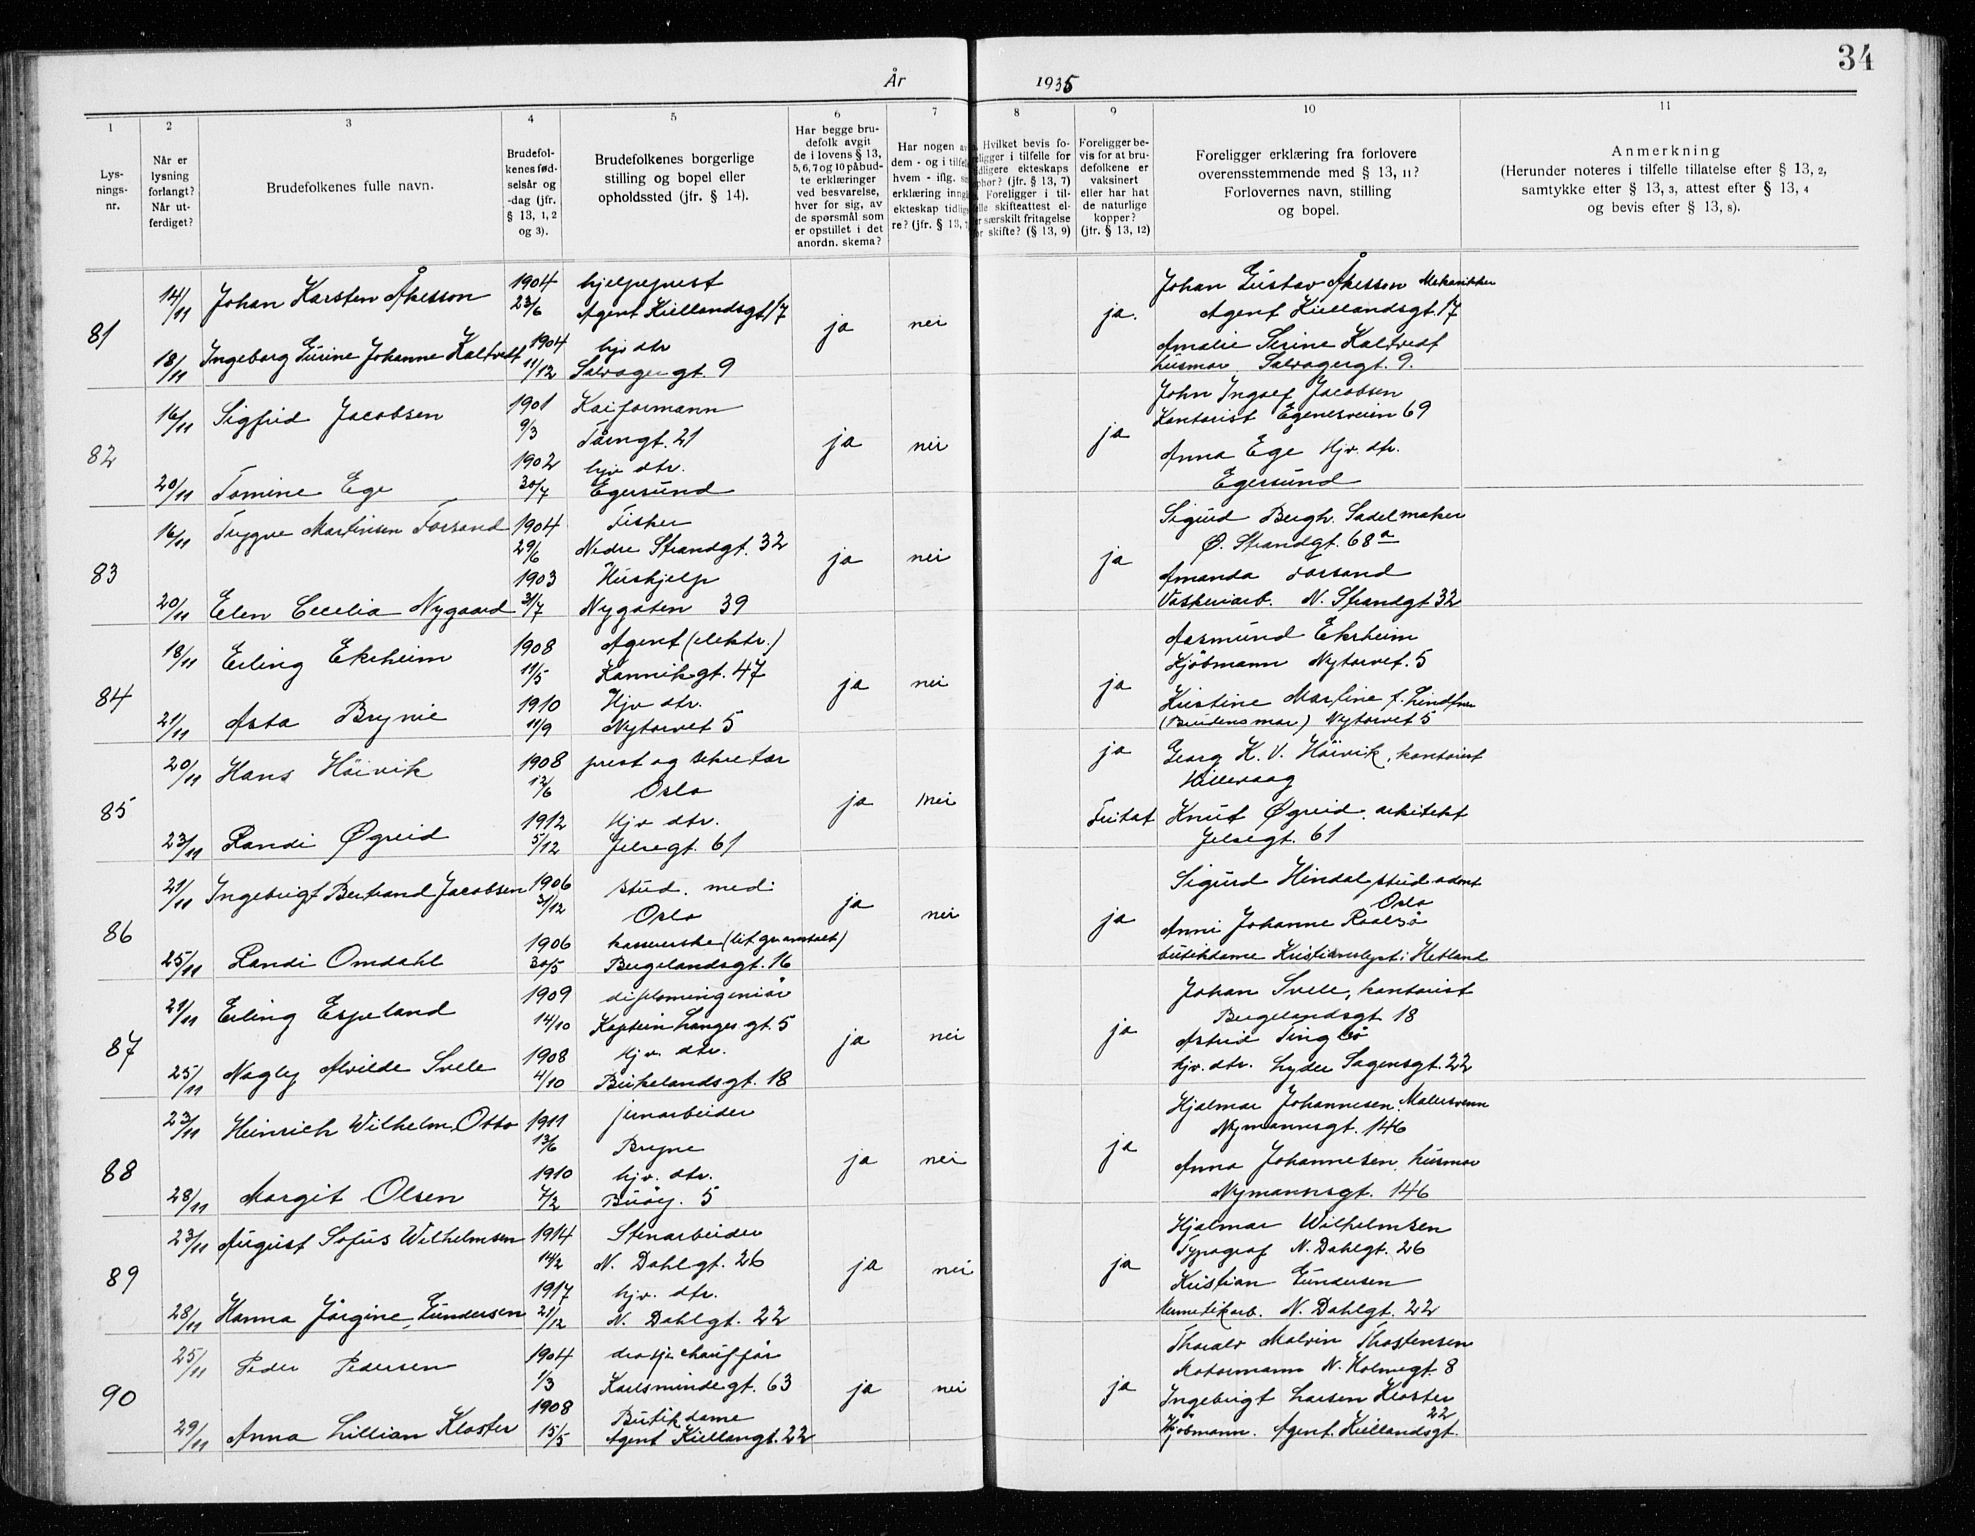 34
År 1935
1 2 3 4 5 6 7 8 9 10 11
Lysnings-nr.
Når er lysning forlangt? Når utferdiget?
Brudefolkenes fulle navn.
Brudefolkenes fødselsår og -dag (jfr. § 13, 1, 2 og 3).
Brudefolkenes borgerlige stilling og bopel eller opholdssted (jfr. § 14).
Har begge brudefolk avgit de i lovens § 13, 5, 6, 7 og 10 påbudte erklæringer ved besvarelse, hver for sig, av de spørsmål som er opstillet i det anordn. skema?
Har nogen av dem - og i tilfelle hvem - iflg. erklæring inngått ekteskap tidligere? (jfr. § 13, 7)
Hvilket bevis foreligger i tilfelle for tidligere ekteskaps ophør? (jfr. § 13, 7) Foreligger i tilfelle skifteattest eller særskilt fritagelse for skifte? (§ 13, 9)
Foreligger bevis for at brudefolkene er vaksinert eller har hat de naturlige kopper? (jfr. § 13, 12)
Foreligger erklæring fra forlovere overensstemmende med § 13, 11? Forlovernes navn, stilling og bopel.
Anmerkning (Herunder noteres i tilfelle tillatelse efter § 13, 2, samtykke efter § 13, 3, attest efter § 13, 4 og bevis efter § 13, 8).
81
14/11 Johan Karsten Åkesson 1904 23/6 hjelpeprest Agent Kiellandsgt. 17
18/11 Ingeborg Gurine Johanne Kaltvedt 1904 11/12 hjv dtr Salvagergt. 9
ja nei ja.
Johan Gustav Åkesson Mekanikker
Agent Kiellandsgt. 17
Amalie Serine Kaltvedt
husmor Salvagergt. 9.
82
16/11 Sigfrid Jacobsen 1901 9/3 Kaiformann Tårngt. 21
20/11 Tomine Ege 1902 30/7 hjv dtr. Egersund
ja nei ja
John Ingolf Jacobsen
Kontorist Egenesveien 69
Anna Ege Hjv. dtr.
Egersund
83
16/11 Trygve Martinsen Forsand 1904 29/6 Fisker Nedre Strandgt. 32
20/11 Elen Cecelia Nygaard 1903 31/7 Hushjelp Nygaten 39
ja nei ja
Sigurd Bergh. Sadelmaker
Ø. Strandgt. 68a
Amanda Forsand
Vaskeriarb. N. Strandgt 32
84
18/11 Erling Ekrheim 1908 11/5 Agent (elektr.) Kannikgt. 47
21/11 Asta Brynie 1910 11/9 Hjv dtr. Nytorvet 5
ja nei ja
Aasmund Ekrheim
Kjöbmann Nytorvet. 5
Kristine Martine f.
(Brudens mor) Nytorvet 5
85
20/11 Hans Höivik 1908 12/6 prest og sekretær Oslo
23/11 Randi Øgreid 1912 5/12 Hjv dtr. Jelsegt. 61
ja nei ja Fritat
Georg K. V. Höivik, kontorist
Hillevaag
Knut Øgreid. arkitekt
Jelsegt. 61
86
21/11 Ingebrigt Bertrand Jacobsen 1906 31/12 stud. med. Oslo
25/11 Randi Omdahl 1906 30/5 kassererske Bergelandsgt. 16
ja nei ja
Sigurd Hindal stud. odont
Oslo
Anni Johanne
butikdame Kristianslyst i Hetland
87
21/11 Erling Espeland 1909 14/10 diplomingeniör Kaptein Langes gt. 5
25/11 Nagley Alvilde Svele 1908 4/10 Hjv. dtr. Birkelandsgt. 18
ja nei ja
Johan Svele, kontorist
Bergelandsgt 18
Astrid Tingbö
hjv. dtr. Lyder Sagensgt. 22
88
23/11 Heinrich Wilhelm Otto 1911 13/6 jernarbeider Bryne
28/11 Margit Olsen 1910 7/2 hjv. dtr. Buöy. 5
ja nei ja
Hjalmar Johannesen. Malersvenn
Nymannsgt. 146
Anna Johannesen, husmor
Nymannsgt. 146
89
23/11 August Sofus Wilhelmsen 1914 14/2 Stenarbeider N. Dahlgt. 26
28/11 Hanna Jörgine Gundersen 1917 21/12 hjv. dtr. N. Dahlgt. 22
ja nei ja
Hjalmar Wilhelmsen
Typograf N. Dahlgt. 26
Kristian Gundersen
Hermetikarb. N. Dahlgt. 22
90
25/11 Peder Pedersen 1904 1/3 drosjechauffør Karlsmindegt. 63
29/11 Anna Lillian Kloster 1908 15/5 Butikdame Agent Kiellangt. 22
ja nei ja
Thoralv Malvin Thostensen
Motormann N. Holmegt. 8
Ingebrigt Larsen Kloster
Kjöbmann. Agent. Kiellandsgt. 22